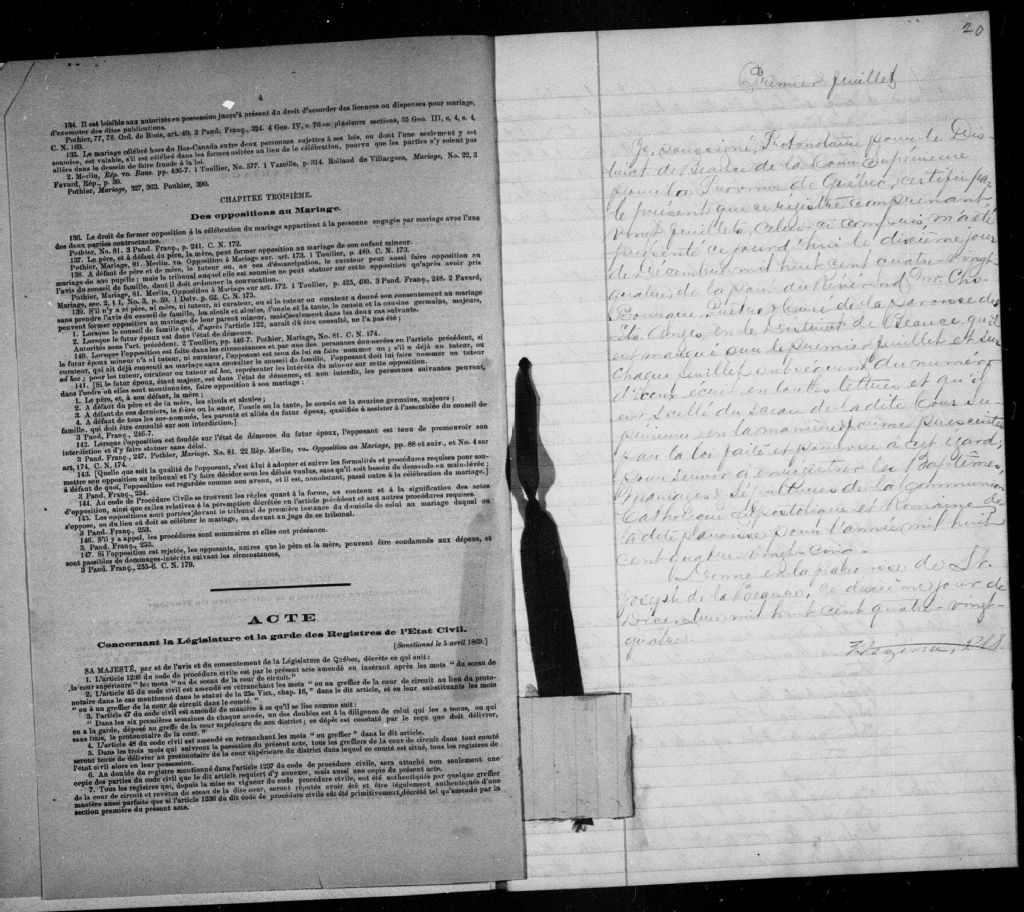 4
134. Il est loisible aux autorités en possession jusqu'à présent du droit d'accorder des licences ou dispenses pour mariage,
d'exempter des dites publications.
Pothier, 77, 78. Ord. de Blois, art. 40; 2 Pand. Franç., 324. 4 Geo. IV, c. 76 en plusieurs sections, 35 Geo. III, c. 4, s. 4,
C. N. 169.
135. Le mariage célébré hors du Bas-Canada entre deux personnes sujettes à ses lois, ou dont l'une seulement y est
soumise, est valable, s'il est célébré dans les formes usitées au lieu de la célébration, pourvu que les parties n'y soient pas
allées dans le dessein de faire fraude à la loi.
2. Merlin, Rép. vo. Bans. pp. 436-7. 1 Toullier, No. 577. 1 Vazeille, p. 314. Rolland de Villargues, Mariage, No. 22, 3
Favard, Rép., p. 30.
Pothier, Mariage, 227, 363. Pothier, 390.
CHAPITRE TROISIÈME.
Des oppositions au Mariage.
136. Le droit de former opposition à la célébration du mariage appartient à la personne engagée par mariage avec l'une
des deux parties contractantes.
Pothier, No. 81. 3 Pand. Franç., p. 241. C. N. 172.
137. Le père, et à défaut du père, la mère, peut former opposition au mariage de son enfant mineur.
Pothier, Mariage, 81. Merlin, vo. Opposition à Mariage sur. art. 173. 1 Toullier, p. 489. C. N. 173.
138. A défaut de père et de mère, le tuteur ou, au cas d'émancipation, le curateur peut aussi faire opposition au
mariage de son pupille; mais le tribunal auquel elle est soumise ne peut statuer sur cette opposition qu'après avoir pris
l'avis du conseil de famille, dont il doit ordonner la convocation.
Pothier, Mariage, 81. Merlin, Opposition à Mariage sur art. 172. 1 Toullier, p. 425, 490. 3 Pand. Franç., 248. 2 Favard,
Mariage, sec. 2, § 1, No. 3, p. 59. 1 Delv. p. 62. C. N. 175.
139. S'il n'y a ni père, ni mère, ni tuteur, ni curateur, ou si le tuteur ou curateur a donné son consentement au mariage
sans prendre l'avis du conseil de famille, les aïeuls et aïeules, l'oncle et la tante, le cousin et la cousine germains, majeurs,
peuvent former opposition au mariage de leur parent mineur, mais seulement dans les deux cas suivants.
1. Lorsque le conseil de famille qui, d'après l'article 122, aurait dû être consulté, ne l'a pas été;
2. Lorsque le futur époux est dans l'état de démence.
Autorités sous l'art. précédent. 2 Toullier, pp. 446-7. Pothier, Mariage, No. 81. C. N. 174.
140. Lorsque l'opposition est faite dans les circonstances et par une des personnes énumérées en l'article précédent, si
le futur époux mineur n'a ni tuteur, ni curateur, l'opposant est tenu de lui en faire nommer un; s'il a déjà un tuteur, ou
curateur, qui ait déjà consenti au mariage sans consulter le conseil de famille, l'opposant doit lui faire nommer un tuteur
ad hoc; pour les tuteur, curateur ou tuteur ad hoc, représenter les intérêts du mineur sur cette opposition.
141. [Si le futur époux, étant majeur, est dans l'état de démence, et non interdit, les personnes suivantes peuvent,
dans l'ordre où elles sont mentionnées, faire opposition à son mariage:
1. Le père, et, à son défaut, la mère;
2. A défaut du père et de la mère, les aïeuls et aïeules;
3. A défaut de ces derniers, le frère ou la sœur, l'oncle ou la tante, le cousin ou la cousine germains, majeurs;
4. A défaut de tous les sus-nommés, les parents et alliés du futur époux, qualifiés à assister à l'assemblée du conseil de
famille, qui doit être consulté sur son interdiction.]
3 Pand. Franç., 246-7.
142. Lorsque l'opposition est fondée sur l'état de démence du futur époux, l'opposant est tenu de promouvoir son
interdiction et d'y faire statuer sans délai.
3 Pand. Franç., 247. Pothier, Mariage, No. 81. 22 Rép. Merlin, vo. Opposition au Mariage, pp. 88 et suiv., et No. 4 sur
art. 174, C. N. 174.
143. [Quelle que soit la qualité de l'opposant, c'est à lui à adopter et suivre les formalités et procédures requises pour sou-
mettre son opposition au tribunal et l'y faire décider sous les délais voulus, sans qu'il soit besoin de demande en main-levée;
à défaut de quoi, l'opposition est regardée comme non avenue, et il est, nonobstant, passé outre à la célébration du mariage.]
3 Pand. Franç., 254.
144. Au code de Procédure Civile se trouvent les règles quant à la forme, au contenu et à la signification des actes
d'opposition, ainsi que celles relatives à la péremption décrétée en l'article précédent et aux autres procédures requises.
145. Les oppositions sont portées devant le tribunal de première instance du domicile de celui au mariage duquel on
s'oppose, ou du lieu où doit se célébrer le mariage, ou devant un juge de ce tribunal.
3 Pand. Franç., 253.
146. S'il y a appel, les procédures sont sommaires et elles ont préséance.
3. Pand. Franç., 253.
147. Si l'opposition est rejetée, les opposants, autres que le père et la mère, peuvent être condamnés aux dépens, et
sont passibles de dommages-intérêts suivant les circonstances.
3 Pand. Franç., 255-6. C. N. 179.
ACTE
Concernant la Législature et la garde des Registres de l'Etat Civil.
[Sanctionné le 5 avril 1869.]
SA MAJESTÉ, par et de l'avis et du consentement de la Législature de Québec, décrète ce qui suit:
1. L'article 1236 du code de procédure civile est par le présent acte amendé en insérant après les mots "du sceau de
la cour supérieure" les mots "ou du sceau de la cour de circuit."
2. L'article 45 du code civil est amendé en retranchant les mots "ou au greffier de la cour de circuit au lieu du proto-
notaire dans le cas mentionné dans le statut de la 25e Vict., chap. 16," dans le dit article, et en leur substituants les mots
"ou à un greffier de la cour de circuit dans le comté."
3. l'article 47 du code civil est amendé de manière à ce qu'il se lise comme suit:
"Dans les six premières semaines de chaque année, un des doubles est à la diligence de celui qui les a tenus, ou qui
en a la garde, déposé au greffe de la cour supérieure de son district; ce dépôt est constaté par le reçu que doit délivrer,
sans frais, le protonotaire de la cour."
4. L'article 48 du code civil est amendé en retranchant les mots "ou greffier" dans le dit article.
5. Dans les trois mois qui suivront la passation du présent acte, tous les greffiers de la cour de circuit dans tout comté
seront tenus de délivrer au protonotaire de la cour supérieure du district dans lequel ce comté est situé, tous les registres de
l'état civil alors en leur possession.
6. Au double du registre mentionné dans l'article 1237 du code de procédure civile, sera attaché non seulement une
copie des parties du code civil que le dit article requiert d'y annexer, mais aussi une copie du présent acte.
7. Tous les registres qui, depuis la mise en vigueur du code procédure civile, ont été authentiqués par quelque greffier
de la cour de circuit et revêtus du sceau de la dite cour, seront réputés avoir été et être légalement authentiqués d'une
manière aussi parfaite que si l'article 1236 du dit code de procédure civile eût été primitivement décrété tel qu'amendé par la
section première du présent acte.
20
Premier feuillet
Je, soussigné, Protonotaire pour le Dis-
trict de Beauce de la Cour Supérieure
pour la Province de Québec, certifie par
le présent que ce registre comprenant
vingt feuillets, celui-ci compris, m'a été
présenté ce jourd'hui le dixième jour
de Décembre mil huit cent quatre-vingt-
quatre, de la part du Révérend Mr. Ths.
Prêtre & Curé de la paroisse de
St. Georges, en le District de Beauce, qu'il
est marqué sur le premier feuillet et sur
chaque feuillet subséquent du numéro
d'iceux écrit en toutes lettres et qu'il
est scellé du sceau de la dite Cour Su-
périeure en la manière & forme prescrites
par la loi faite et pourvue à cet égard;
pour servir à enregistrer les Baptêmes,
Mariages & Sépultures de la Communion
Catholique Apostolique et Romaine de
la dite paroisse pour l'année mil huit
cent quatre vingt-cinq.
Donné en la paroisse de St.
Joseph de la Beauce, ce dixième jour de
Décembre mil huit cent quatre-vingt-
quatre.